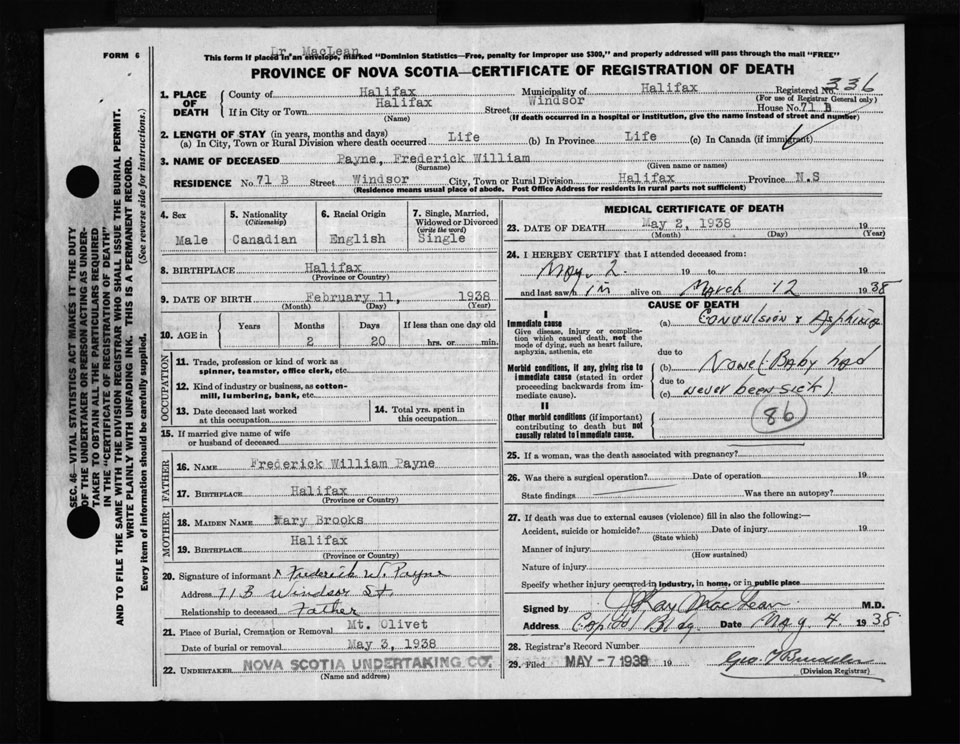 Dr. MacLean
FORM 6
This form if placed in an envelope, marked "Dominion Statistics—Free, penalty for improper use $300," and properly addressed will pass through the mail "FREE"
PROVINCE OF NOVA SCOTIA—CERTIFICATE OF REGISTRATION OF DEATH
SEC. 46—VITAL STATISTICS ACT MAKES IT THE DUTY
OF THE UNDERTAKER OR PERSON ACTING AS UNDER-
TAKER TO OBTAIN ALL THE PARTICULARS REQUIRED
IN THE "CERTIFICATE OF REGISTRATION OF DEATH"
AND TO FILE THE SAME WITH THE DIVISION REGISTRAR WHO SHALL ISSUE THE BURIAL PERMIT.
WRITE PLAINLY WITH UNFADING INK. THIS IS A PERMANENT RECORD.
Every item of information should be carefully supplied. (See reverse side for instructions.)
1. PLACE OF DEATH County of Halifax Municipality of Halifax Registered No. 336
(For use of Registrar General only)
If in City or Town Halifax Street Windsor House No. 71 B
(Name) (If death occurred in a hospital or institution, give the name instead of street and number)
2. LENGTH OF STAY (in years, months and days)
(a) In City, Town or Rural Division where death occurred Life (b) In Province Life (c) In Canada (if immigrant)
3. NAME OF DECEASED Payne, Frederick William
(Surname) (Given name or names)
RESIDENCE No. 71 B Street Windsor City, Town or Rural Division Halifax Province N.S
(Residence means usual place of abode. Post Office Address for residents in rural parts not sufficient)
4. Sex 5. Nationality (Citizenship) 6. Racial Origin 7. Single, Married, Widowed or Divorced (write the word)
Male Canadian English Single
8. BIRTHPLACE Halifax
(Province or Country)
9. DATE OF BIRTH February 11, 1938
(Month) (Day) (Year)
10. AGE in Years Months Days If less than one day old
2 20 hrs. or min.
OCCUPATION
11. Trade, profession or kind of work as
spinner, teamster, office clerk, etc.
12. Kind of industry or business, as cotton-
mill, lumbering, bank, etc.
13. Date deceased last worked
at this occupation
14. Total yrs. spent in
this occupation
15. If married give name of wife
or husband of deceased
FATHER
16. NAME Frederick William Payne
17. BIRTHPLACE Halifax
(Province or Country)
MOTHER
18. MAIDEN NAME Mary Brooks
19. BIRTHPLACE Halifax
(Province or Country)
20. Signature of informant Frederick W. Payne
Address 71B Windsor St.
Relationship to deceased Father
21. Place of Burial, Cremation or Removal Mt. Olivet
Date of burial or removal May 3, 1938
22. UNDERTAKER NOVA SCOTIA UNDERTAKING CO.
(Name and address)
MEDICAL CERTIFICATE OF DEATH
23. DATE OF DEATH May 2, 1938 19
(Month) (Day) (Year)
24. I HEREBY CERTIFY that I attended deceased from:
May. 2. 19 to 19
and last saw h im alive on March 12 1938
CAUSE OF DEATH
I
Immediate cause
Give disease, injury or complica-
tion which caused death, not the
mode of dying, such as heart failure,
asphyxia, asthenia, etc
(a) Convulsion &
due to
Morbid conditions, if any, giving rise to
immediate cause (stated in order
proceeding backwards from im-
mediate cause).
(b) None (Baby had
due to
(c) never been sick).
II
Other morbid conditions (if important)
contributing to death but not
causally related to immediate cause.
86
25. If a woman, was the death associated with pregnancy?
26. Was there a surgical operation? Date of operation 19
State findings Was there an autopsy?
27. If death was due to external causes (violence) fill in also the following:—
Accident, suicide or homicide? Date of injury 19
(State which)
Manner of injury
(How sustained)
Nature of injury
Specify whether injury occurred in industry, in home, or in public place
Signed by J Ray MacLean M.D.
Address Capitol Bldg. Date May 4. 1938
28. Registrar's Record Number
29. Filed MAY -7 1938 19
(Division Registrar)